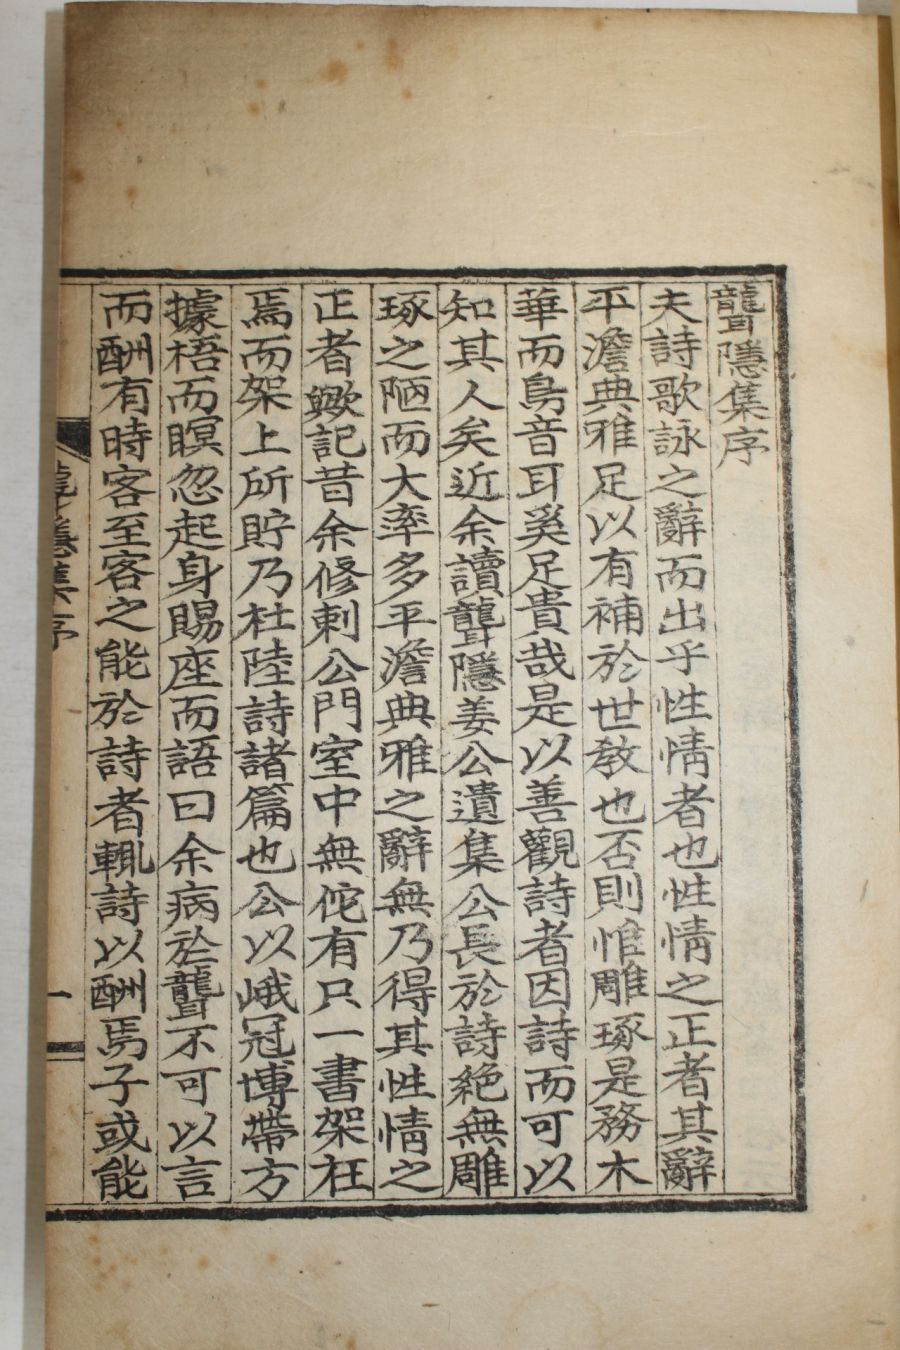 聾隱集序
夫詩歌詠之辭而出乎性情者也性情之正者其辭
平澹典雅足以有補於世敎也否則惟雕琢是務木
華而鳥音耳奚足貴哉是以善觀詩者因詩而可以
知其人矣近余讀聾隱姜公遺集公長於詩絶無雕
琢之陋而大率多平澹典雅之辭無乃得其性情之
正者歟記昔余修刺公門室中無佗有只一書架在
焉而架上所貯乃杜陸詩諸篇也公以峨冠博帶方
據梧而瞑忽起身賜座而語曰余病於聾不可以言
而酬有時客至客之能於詩者輒詩以酬焉子或能
聾隱集序
一